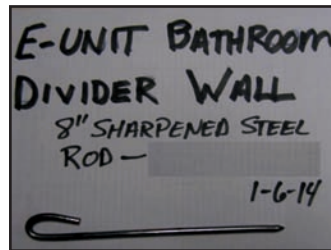 E-UNIT BATHROOM
DIVIDER WALL
8" SHARPENED STEEL
ROD —
1-6-14